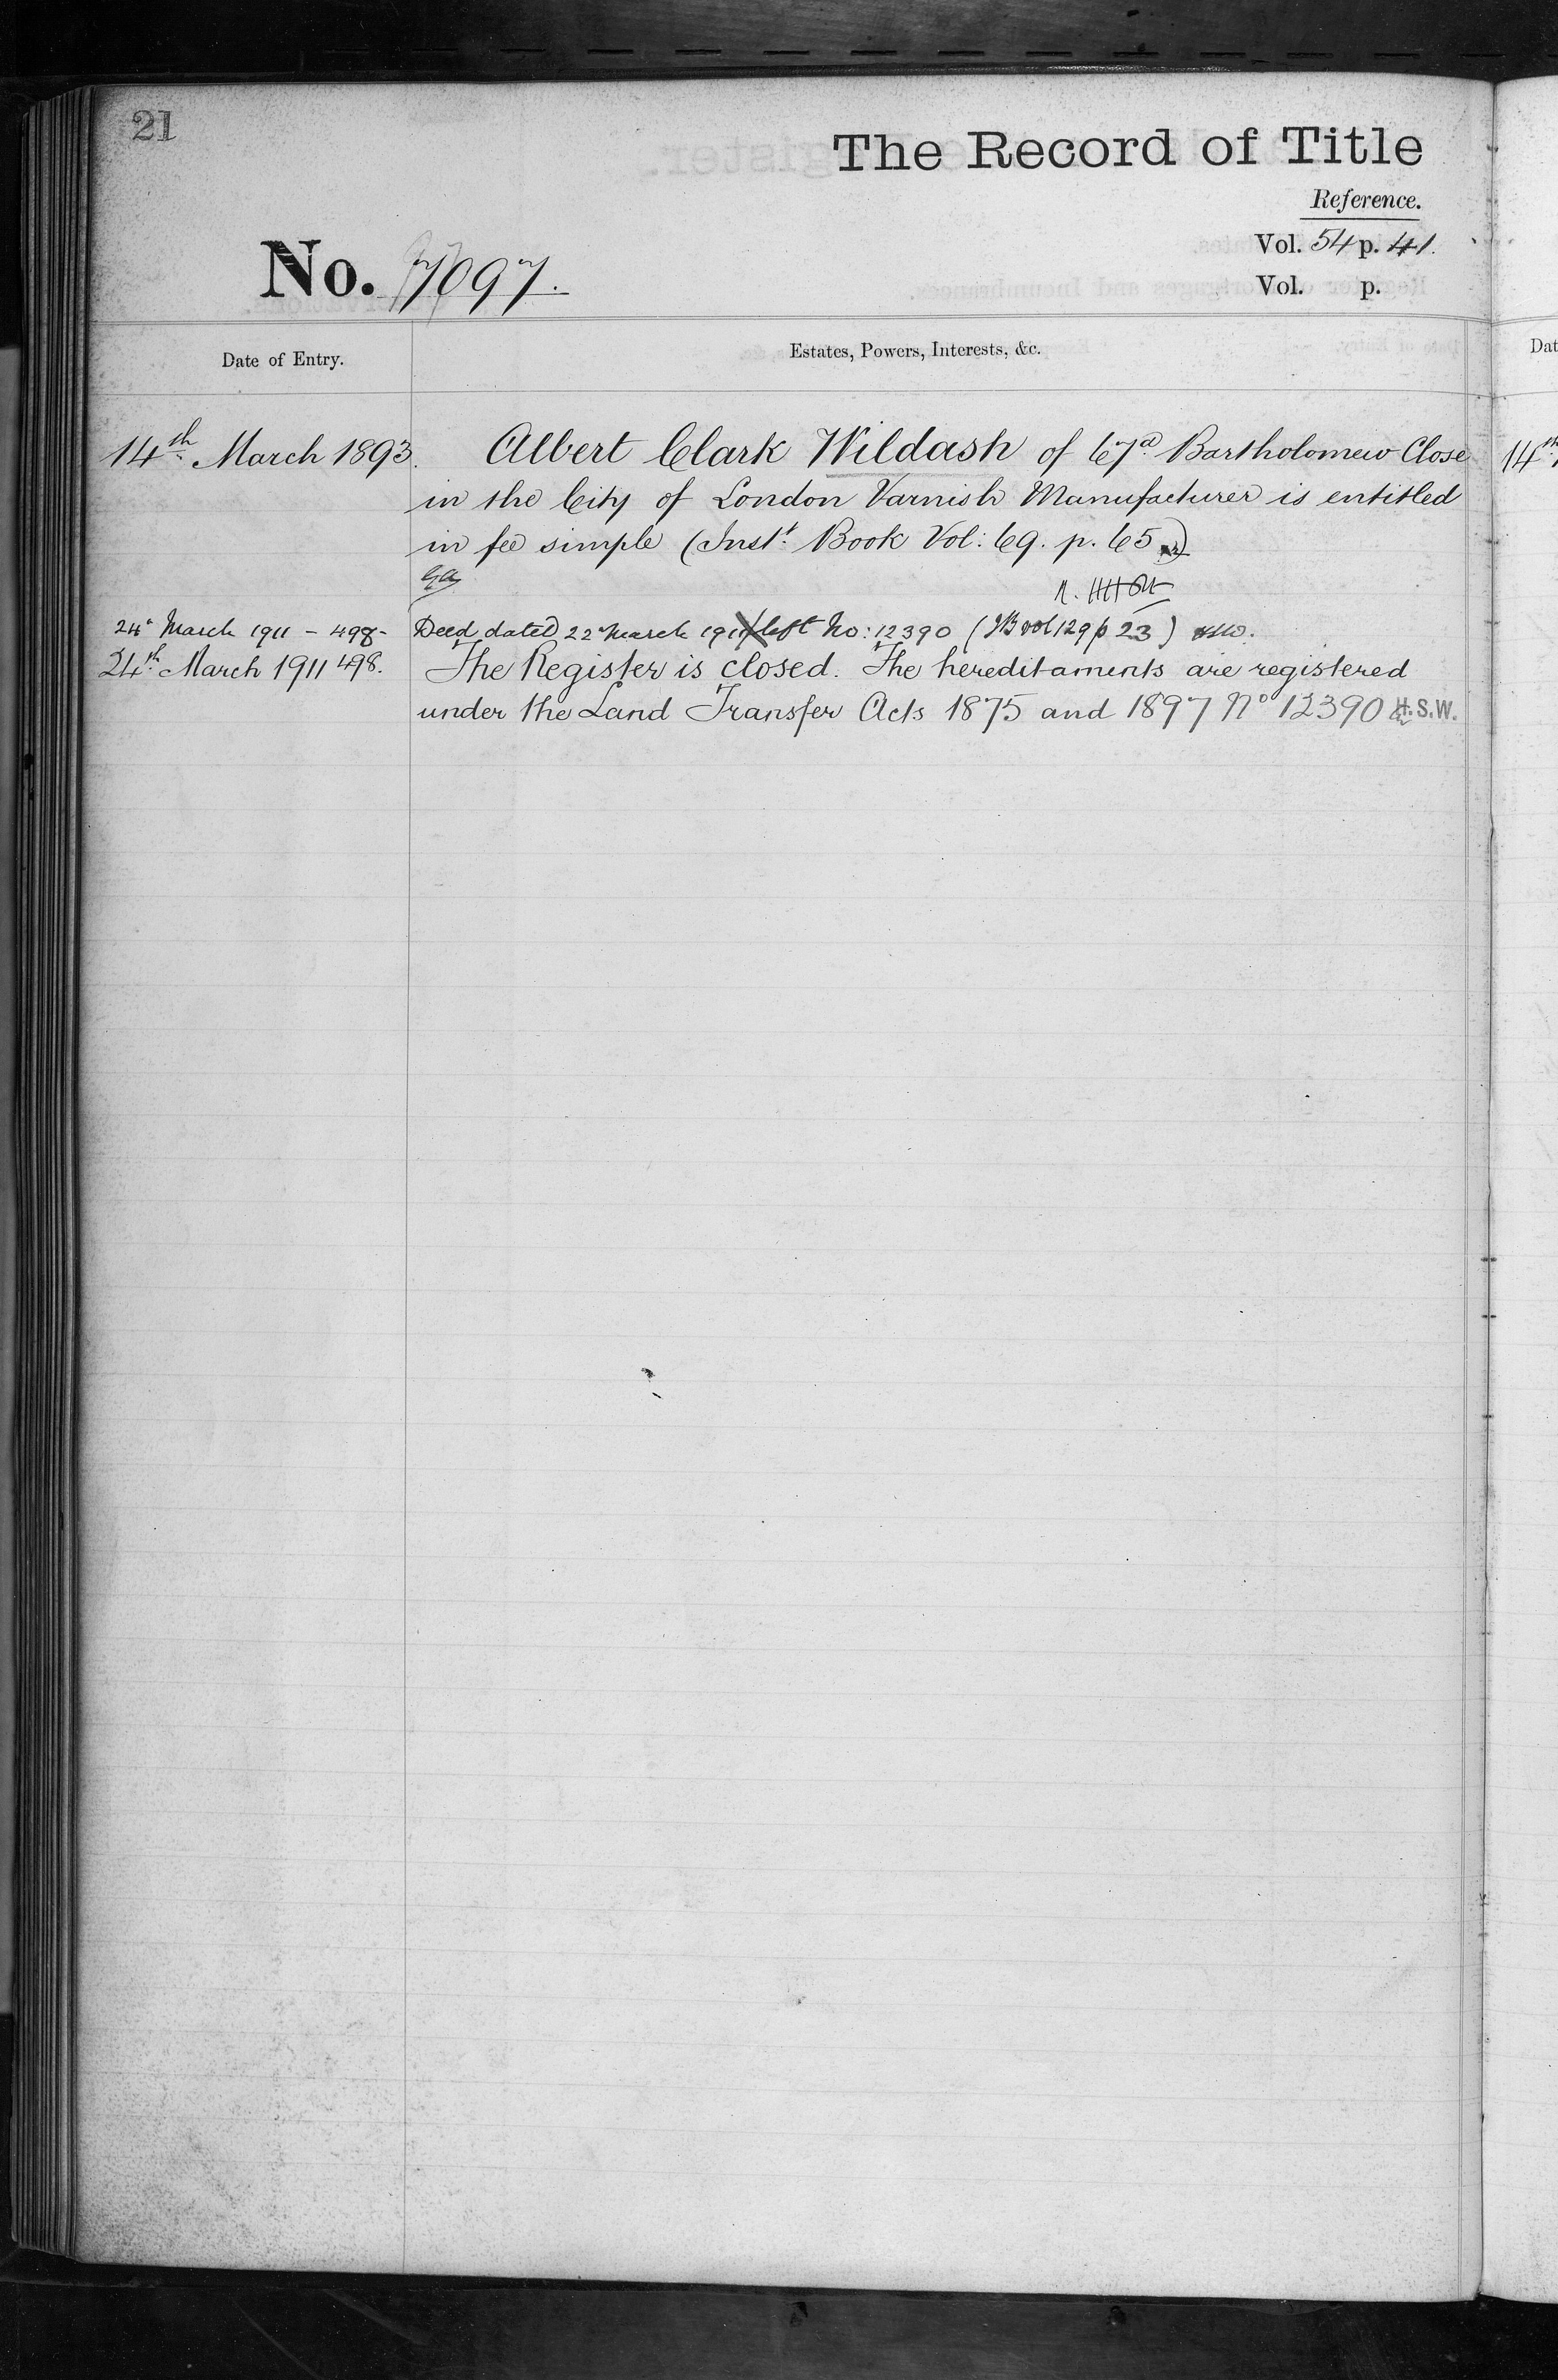 21
The Record of Title
Reference.
Vol. 54 p. 41.
No. 7097.
Vol. p.
Date of Entry.
Estates, Powers, Interests, &c.
Dat
14th March 1893. Albert Clark Wildash of 67a Bartholomew Close
14th
in the City of London Varnish Manufacturer is entitled
in fee simple (Inst. Book Vol: 69. p. 65)
24 March 1911 - 498- Deed dated 22 March 1911 left No: 12390 (IB vol 129 p 23) HSW.
24th March 1911 498. The Register is closed. The hereditaments are registered
under the Land Transfer Acts 1875 and 1897 No 12390 H.S.W.